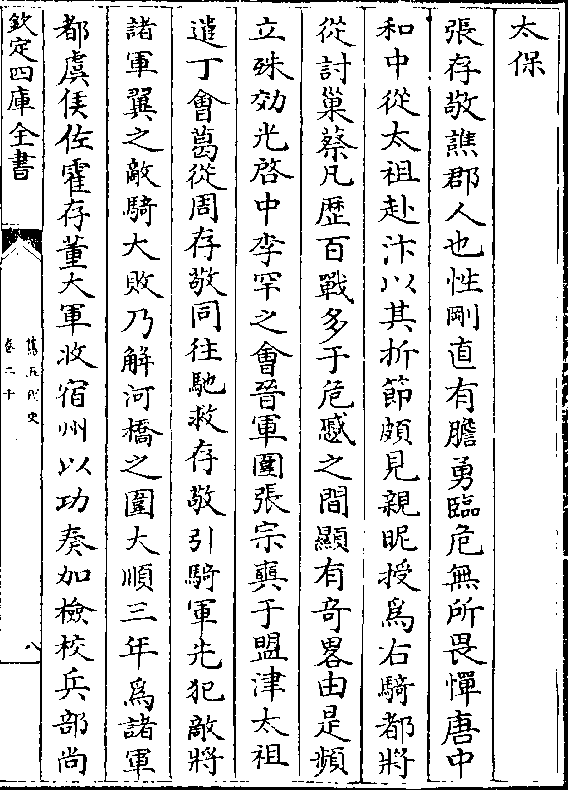 太保
張存敬譙郡人也性剛直有膽勇臨危無所畏憚唐中
和中從太祖赴汴以其折節頗見親昵授為右騎都將
從討巢蔡凡歴百戰多于危蹙之間顯有奇畧由是頻
立殊効光啓中李罕之會晉軍圍張宗奭于盟津太祖
遣丁會葛從周存敬同往馳救存敬引騎軍先犯敵將
諸軍翼之敵騎大敗乃解河橋之圍大順三年為諸軍
都虞侯佐霍存董大軍收宿州以功奏加檢校兵部尚
欽定四庫全書
舊五代史
卷二十
八